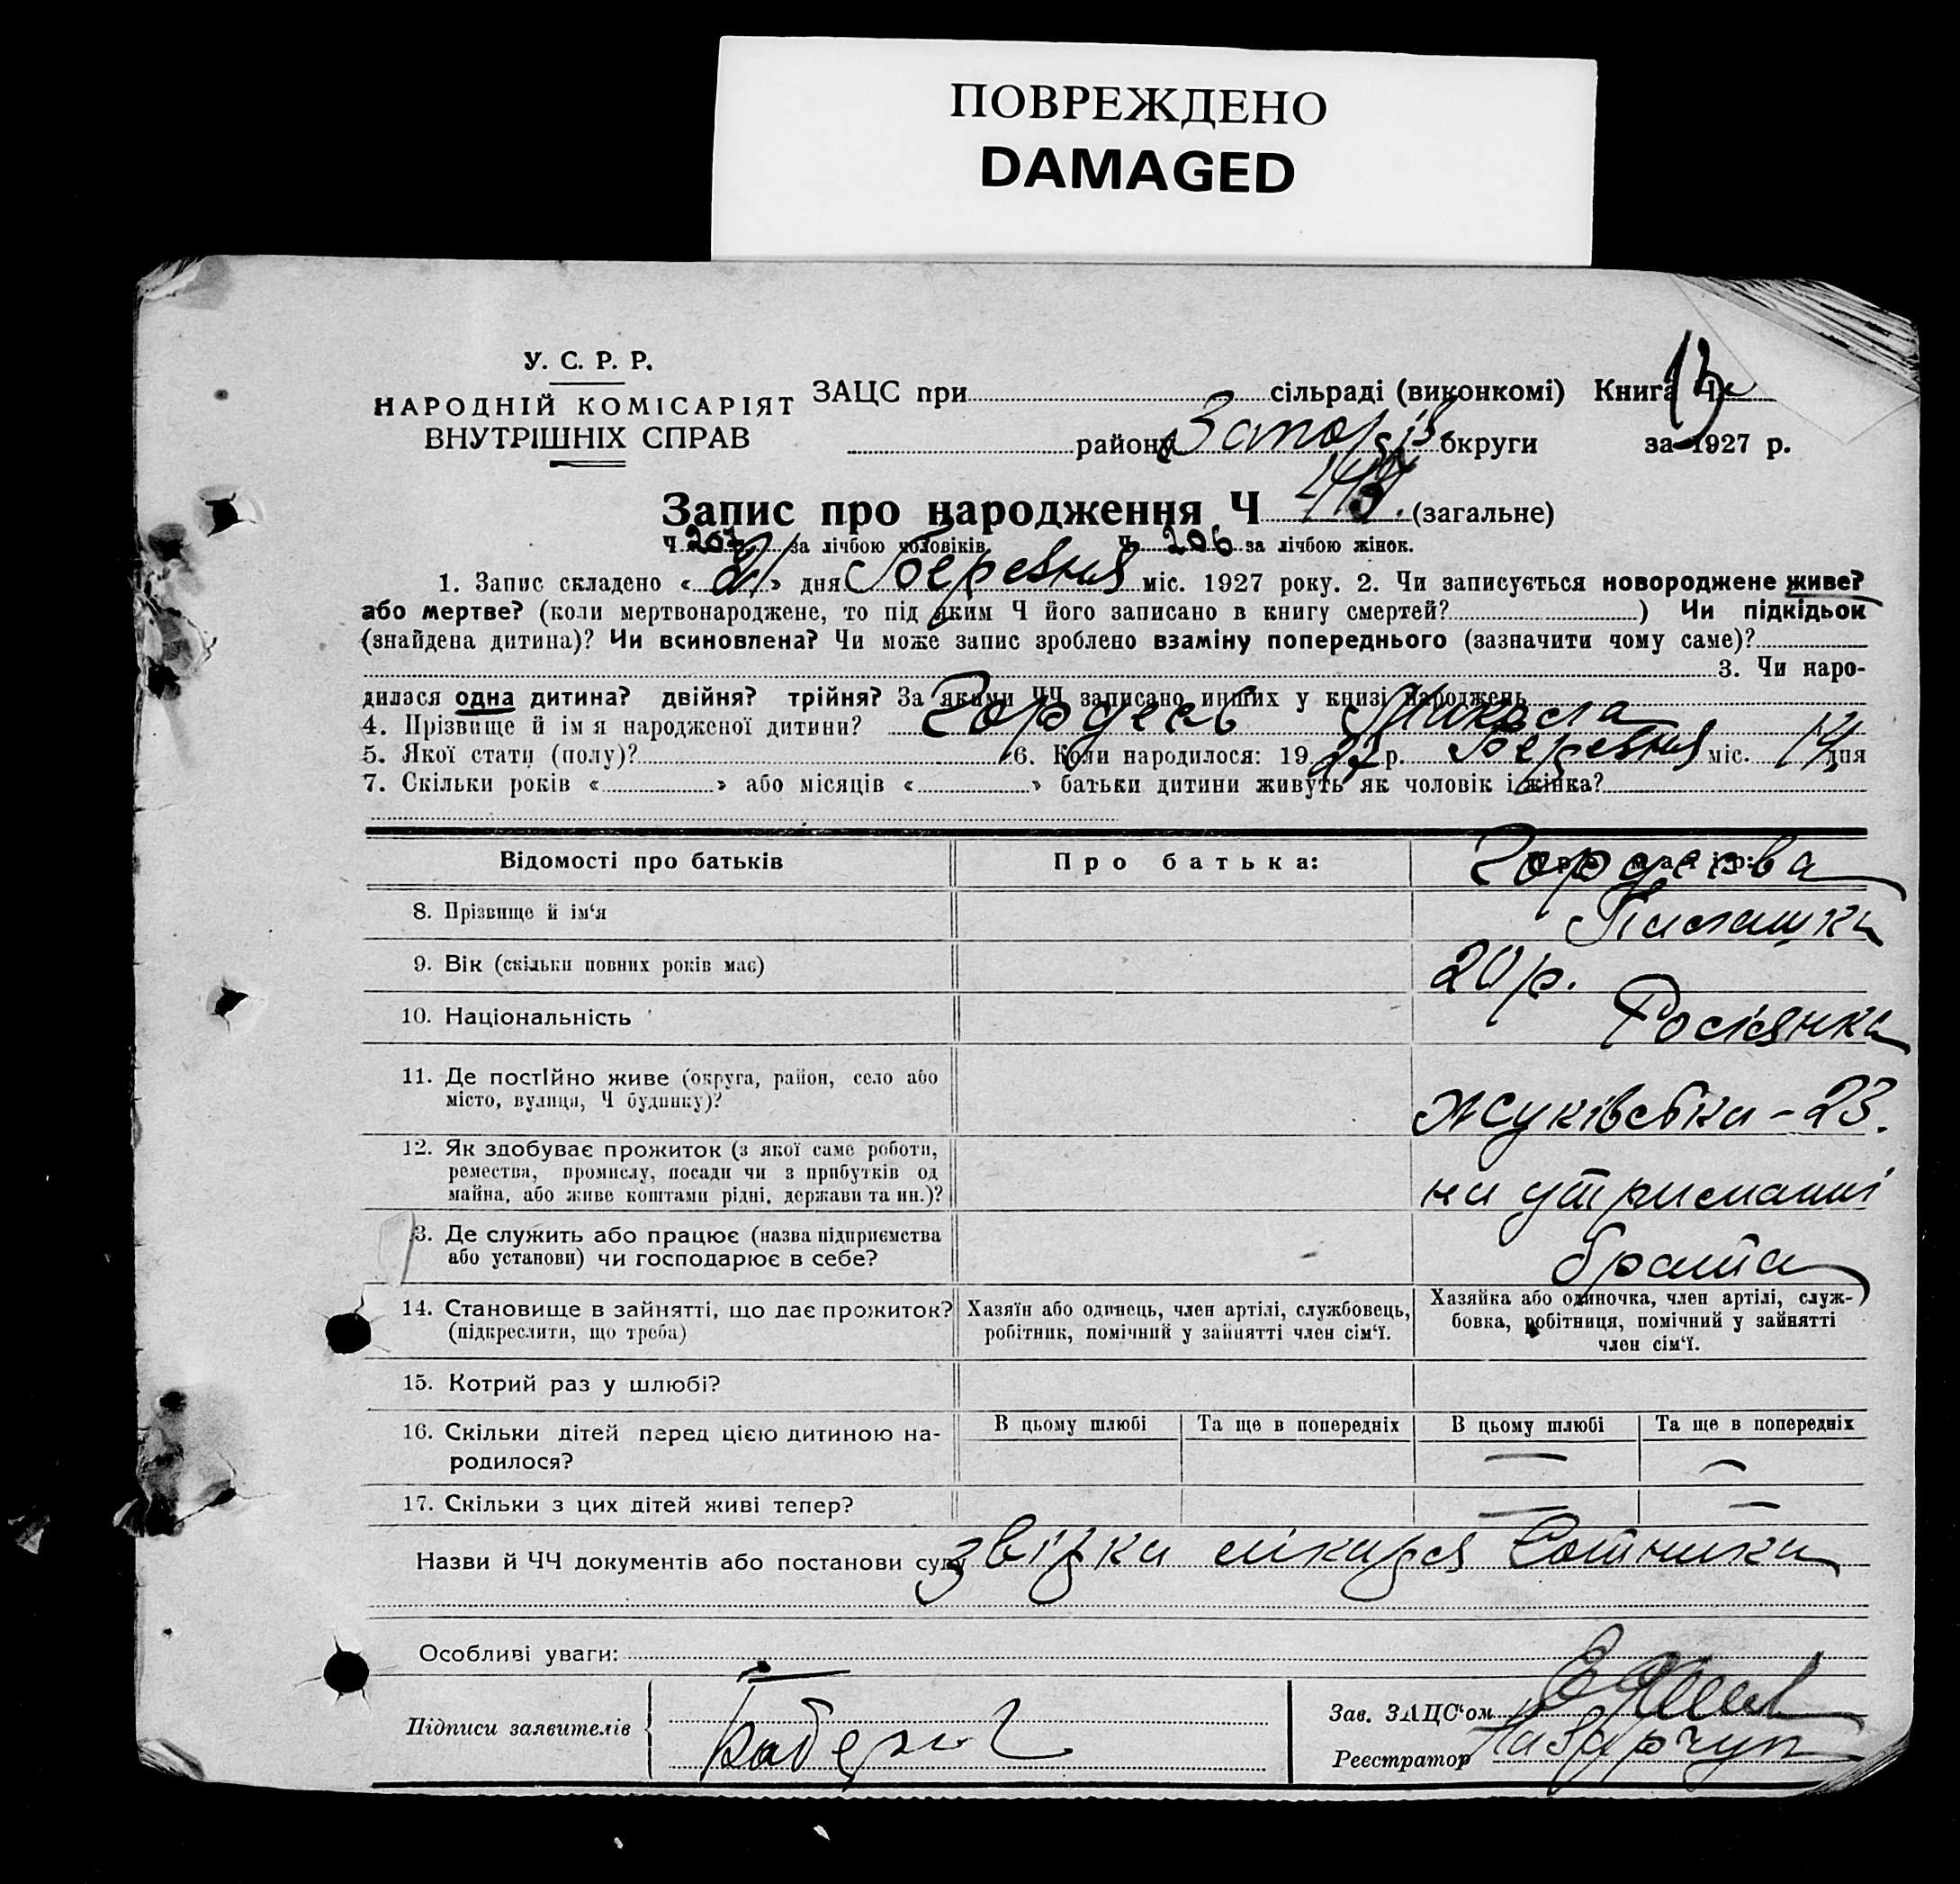 ПОВРЕЖДЕНО
DAMAGED
У. С. Р. Р.
НАРОДНІЙ КОМІСАРІЯТ
ВНУТРІШНІХ СПРАВ
ЗАЦС при сільраді (виконкомі) Книга Ч 13
району Запоріз округи за 1927 р.
Запис про народження Ч (загальне)
Ч 207 за лічбою чоловіків Ч 206 за лічбою жінок.
1. Запис складено «21» дня Березня міс. 1927 року. 2. Чи записується новороджене живе?
або мертве? (коли мертвонароджене, то під яким Ч його записано в книгу смертей? ) Чи підкідьок
(знайдена дитина)? Чи всиновлена? Чи може запис зроблено взаміну попереднього (зазначити чому саме)?
3. Чи наро-
дилася одна дитина? двійня? трійня? За якими ЧЧ записано инших у книзі народжень
4. Прізвище й ім я народженої дитини? Гордеев Микола
5. Якої стати (полу)? 6. Коли народилося: 1927 р. Березня міс. 14 дня
7. Скільки років « » або місяців « » батьки дитини живуть як чоловік і жінка?
Відомості про батьків Про батька: Про матір:
Гордеева
8. Прізвище й ім‘я Палашка
9. Вік (скільки повних років має) 20 р.
10. Національність Росіянка
11. Де постійно живе (округа, район, село або
місто, вулиця, Ч будинку)? Жуківська - 23.
12. Як здобуває прожиток (з якої саме роботи,
ремества, промислу, посади чи з прибутків од
майна, або живе коштами рідні, держави та ин.)? на утриманні
3. Де служить або працює (назва підприємства
або установи) чи господарює в себе? брата
14. Становище в зайнятті, що дає прожиток?
(підкреслити, що треба)
Хазяїн або одинець, член артілі, службовець,
робітник, помічний у зайнятті член сім‘ї.
Хазяйка або одиночка, член артілі, служ-
бовка, робітниця, помічний у зайнятті
член сім‘ї.
15. Котрий раз у шлюбі?
16. Скільки дітей перед цією дитиною на-
родилося?
В цьому шлюбі Та ще в попередніх В цьому шлюбі Та ще в попередніх
— —
17. Скільки з цих дітей живі тепер? — —
Назви й ЧЧ документів або постанови суду звірка лікаря Сотника
Особливі уваги:
Підписи заявителів
Зав. ЗАЦС‘ом
Реєстратор Назарчук